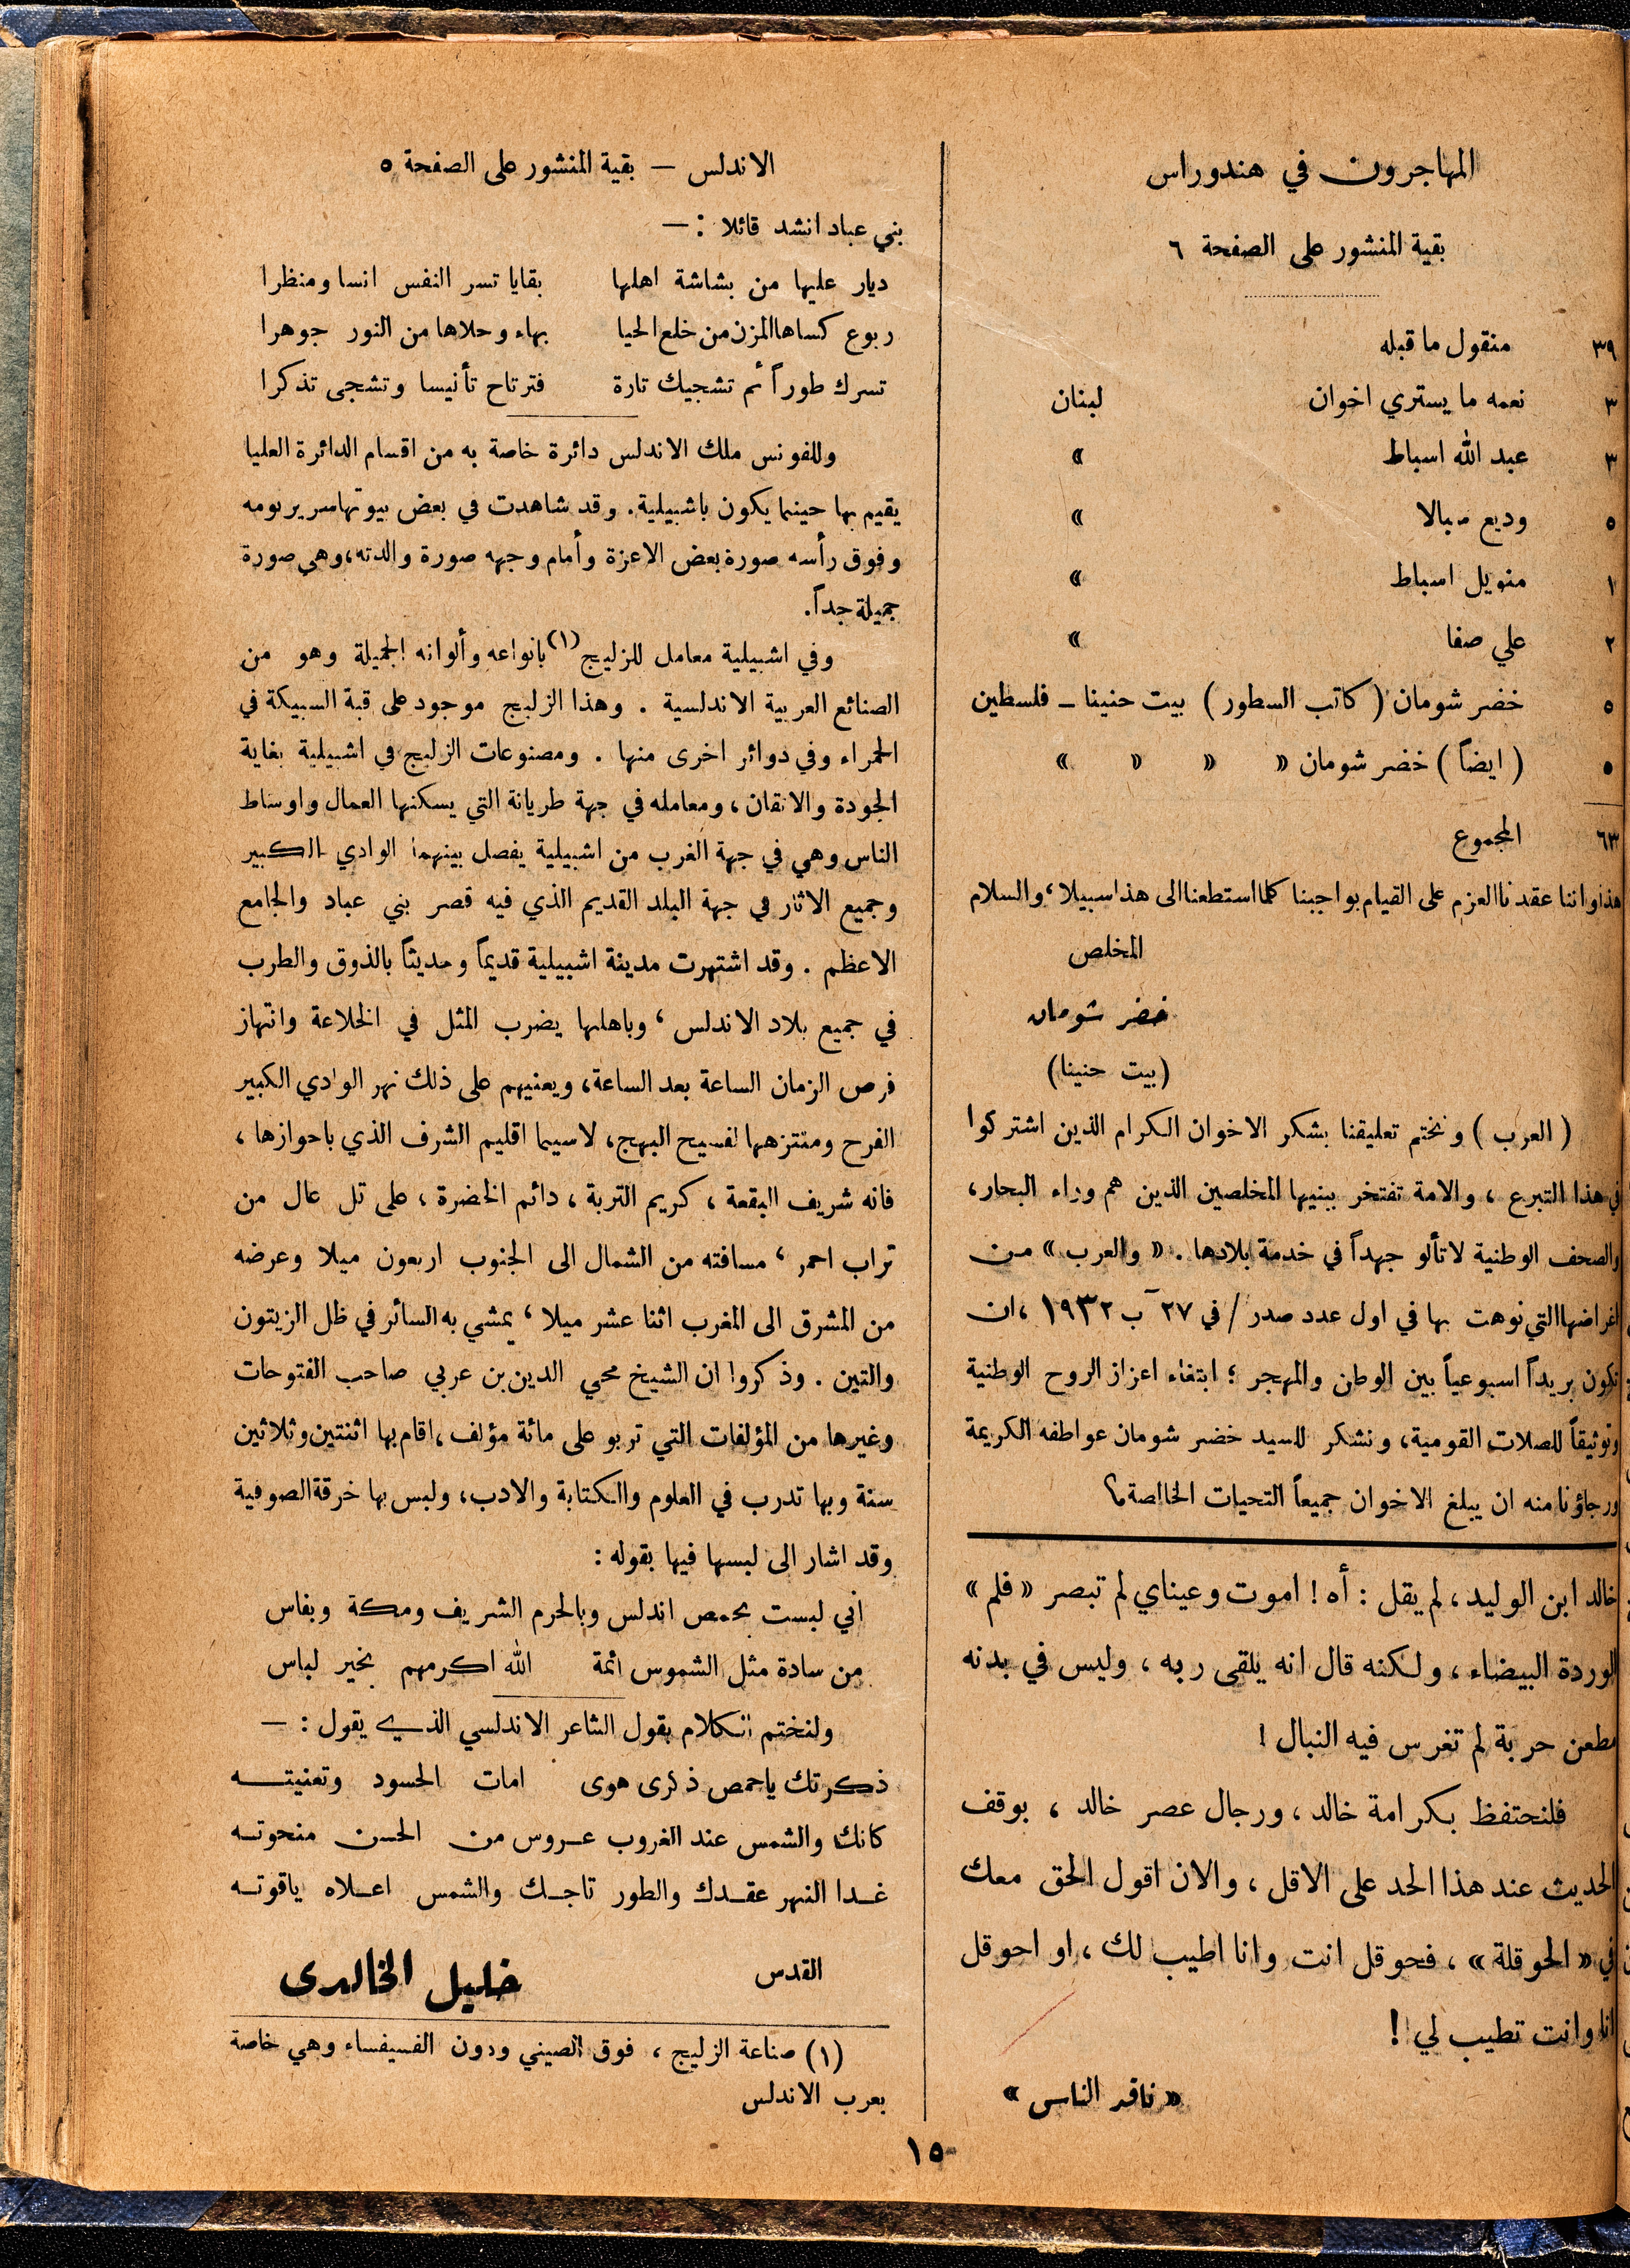 المهاجرون في هندوراس
بقية المنشور على الصفحة ٦
٣٩ منقول ما قبله
٣ نعمه ما يستري اخوان لبنان
٣ عبد الله اسباط »
٥ وديع مبالا »
١ منويل اسباط »
٢ علي صفا »
٥ خضر شومان ( كاتب السطور ) بيت حنينا – فلسطين
٥ ( ايضاً ) خضر شومان » » » »
٦٣ المجموع
هذا واننا عقدنا العزم على القيام بواجبنا كلما استطعنا الى هذا سبيلا ، والسلام
المخلص
خضر شومان
(بيت حنينا)
( العرب ) ونختم تعليقنا بشكر الاخوان الكرام الذين اشتركوا
في هذا التبرع ، والامة تفتخر ببنيها المخلصين الذين هم وراء البحار ،
والصحف الوطنية لا تألو جهداً في خدمة بلادها . « والعرب » من
اغراضها التي نوهت بها في اول عدد صدر / في ٢٧ آب ١٩٣٢ ، ان
تكون بريداً اسبوعياً بين الوطن والمهجر ؛ ابتغاء اعزاز الروح الوطنية
وتوثيقاً للصلات القومية ، ونشكر للسيد خضر شومان عواطفه الكريمة
ورجاؤنا منه ان يبلغ الاخوان جميعاً التحيات الخالصة
خالد ابن الوليد ، لم يقل : أه ! اموت وعيناي لم تبصر « فلم »
الوردة البيضاء ، ولكنه قال انه يلقى ربه ، وليس في بدنه
مطعن حربة لم تغرس فيه النبال !
فلنحتفظ بكرامة خالد ، ورجال عصر خالد ، بوقف
الحديث عند هذا الحد على الاقل ، والان اقول الحق معك
في « الحوقلة » ، فحوقل انت وانا اطيب لك ، او احوقل
انا وانت تطيب لي !
« ناقد الناس »
الاندلس – بقية المنشور على الصفحة ٥
بني عباد انشد قائلا : –
ديار عليها من بشاشة اهلها بقايا تسر النفس انسا ومنظرا
ربوع كساها المزن من خلع الحيا بهاء وحلاها من النور جوهرا
تسرك طوراً ثم تشجيك تارة فترتاح تأنيسا وتشجى تذكرا
وللفونس ملك الاندلس دائرة خاصة به من اقسام الدائرة العليا
يقيم بها حينما يكون باشبيلية . وقد شاهدت في بعض بيوتها سرير نومه
وفوق رأسه صورة بعض الاعزة وأمام وجهه صورة والدته ، وهي صورة
جميلة جداً .
وفي اشبيلية معامل للزليج (١) بانواعه وألوانه الجميلة وهو من
الصنائع العربية الاندلسية . وهذا الزليج موجود على قبة السبيكة في
الحمراء وفي دوائر اخرى منها . ومصنوعات الزليج في اشبيلية بغاية
الجودة والاتقان ، ومعامله في جهة طريانة التي يسكنها العمال واوساط
الناس وهي في جهة الغرب من اشبيلية يفصل بينهما الوادي الكبير
وجميع الاثار في جهة البلد القديم الذي فيه قصر بني عباد والجامع
الاعظم . وقد اشتهرت مدينة اشبيلية قديماً وحديثاً بالذوق والطرب
في جميع بلاد الاندلس ، وباهلها يضرب المثل في الخلاعة وانتهاز
فرص الزمان الساعة بعد الساعة ، ويعنيهم على ذلك نهر الوادي الكبير
الفرح ومنتزهها لفسيح البهج ، لاسيما اقليم الشرف الذي باحوازها ،
فانه شريف البقعة ، كريم التربة ، دائم الخضرة ، على تل عال من
تراب احمر ، مسافته من الشمال الى الجنوب اربعون ميلا وعرضه
من المشرق الى المغرب اثنا عشر ميلا ، يمشي به السائر في ظل الزيتون
والتين . وذكروا ان الشيخ محي الدين بن عربي صاحب الفتوحات
وغيرها من المؤلفات التي تربو على مائة مؤلف ، اقام بها اثنتين وثلاثين
سنة وبها تدرب في العلوم والكتابة والادب ، ولبس بها خرقة الصوفية
وقد اشار الى لبسها فيها بقوله :
اني لبست بحمص اندلس وبالحرم الشريف ومكة وبفاس
من سادة مثل الشموس ائمة الله اكرمهم بخير لباس
ولنختم الكلام بقول الشاعر الاندلسي الذي يقول : –
ذكرتك ياحمص ذكرى هوى امات الحسود وتعنيته
كانك والشمس عند الغروب عروس من الحسن منحوته
غدا النهر عقدك والطور تاجك والشمس اعلاه ياقوته
القدس خليل الخالدى
(١) صناعة الزليج ، فوق الصيني ودون الفسيفساء وهي خاصة
بعرب الاندلس
١٥